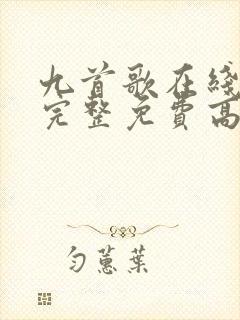 九首歌在綫
完整免費高
匀蕙葉